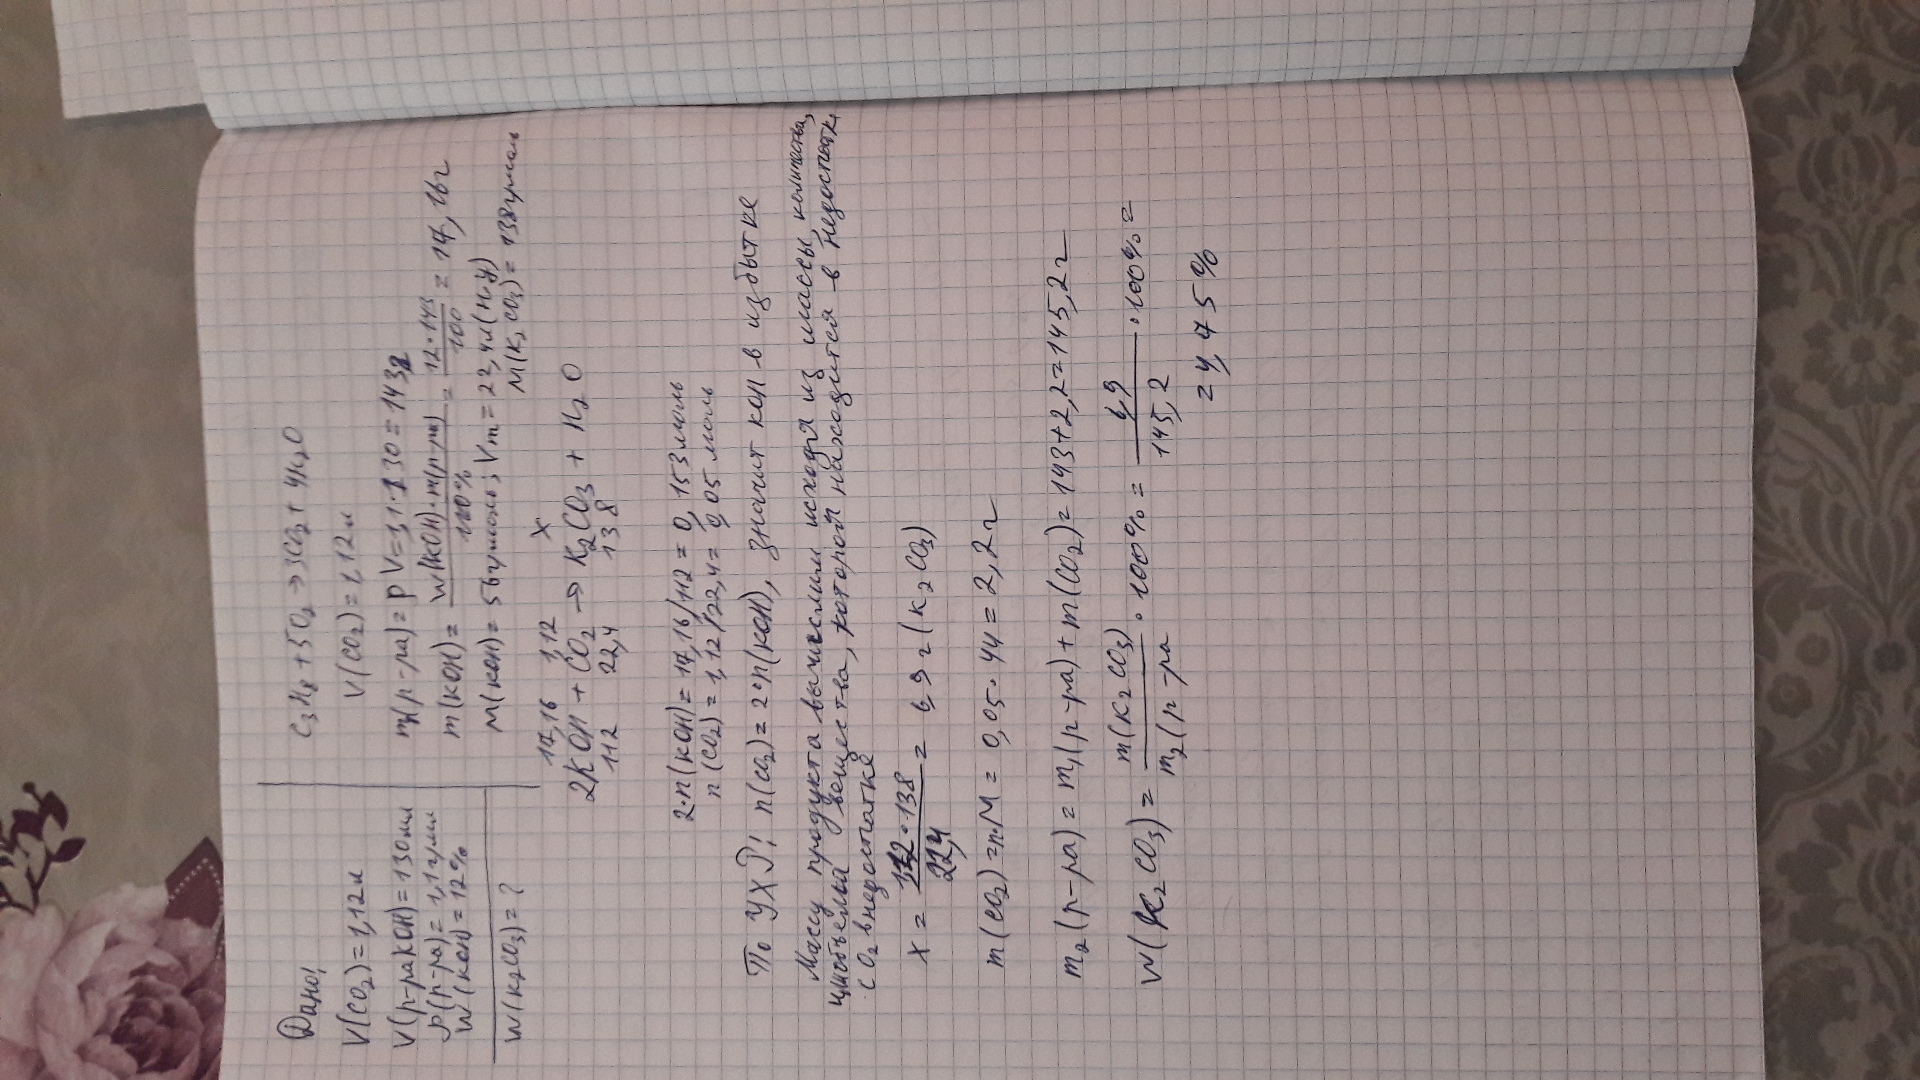 Дано:
V(CO₂) = 1,12л
V(р-раKOH) = 130мл
ρ(р-ра) = 1,1г/мл
W(KOH) = 12%
W(K₂CO₃) = ?
C₃H₈ + 5O₂ → 3CO₂ + 4H₂O
V(CO₂) = 1,12л
m(р-ра) = ρV = 1,1·130 = 143г
m(KOH) = W(KOH)·m(р-ра)/100% = 12·143/100 = 17,16г
M(KOH) = 56г/моль; Vm = 22,4л(н.у)
M(K₂CO₃) = 138г/моль
17,16 1,12 X
2KOH + CO₂ → K₂CO₃ + H₂O
112 22,4 138
2·n(KOH) = 17,16/112 = 0,153моль
n(CO₂) = 1,12/22,4 = 0,05моль
По УХР: n(CO₂) = 2·n(KOH), значит KOH в избытке
Массу продукта вычислим исходя из массы, количества,
объёма вещества, которой находится в недостатке
CO₂ в недостатке
X = 1,12·138/22,4 = 6,9г(K₂CO₃)
m(CO₂) = n·M = 0,05·44 = 2,2г
m₂(р-ра) = m₁(р-ра) + m(CO₂) = 143 + 2,2 = 145,2г
W(K₂CO₃) = m(K₂CO₃)/m₂(р-ра · 100% = 6,9/145,2 · 100% =
= 4,75%